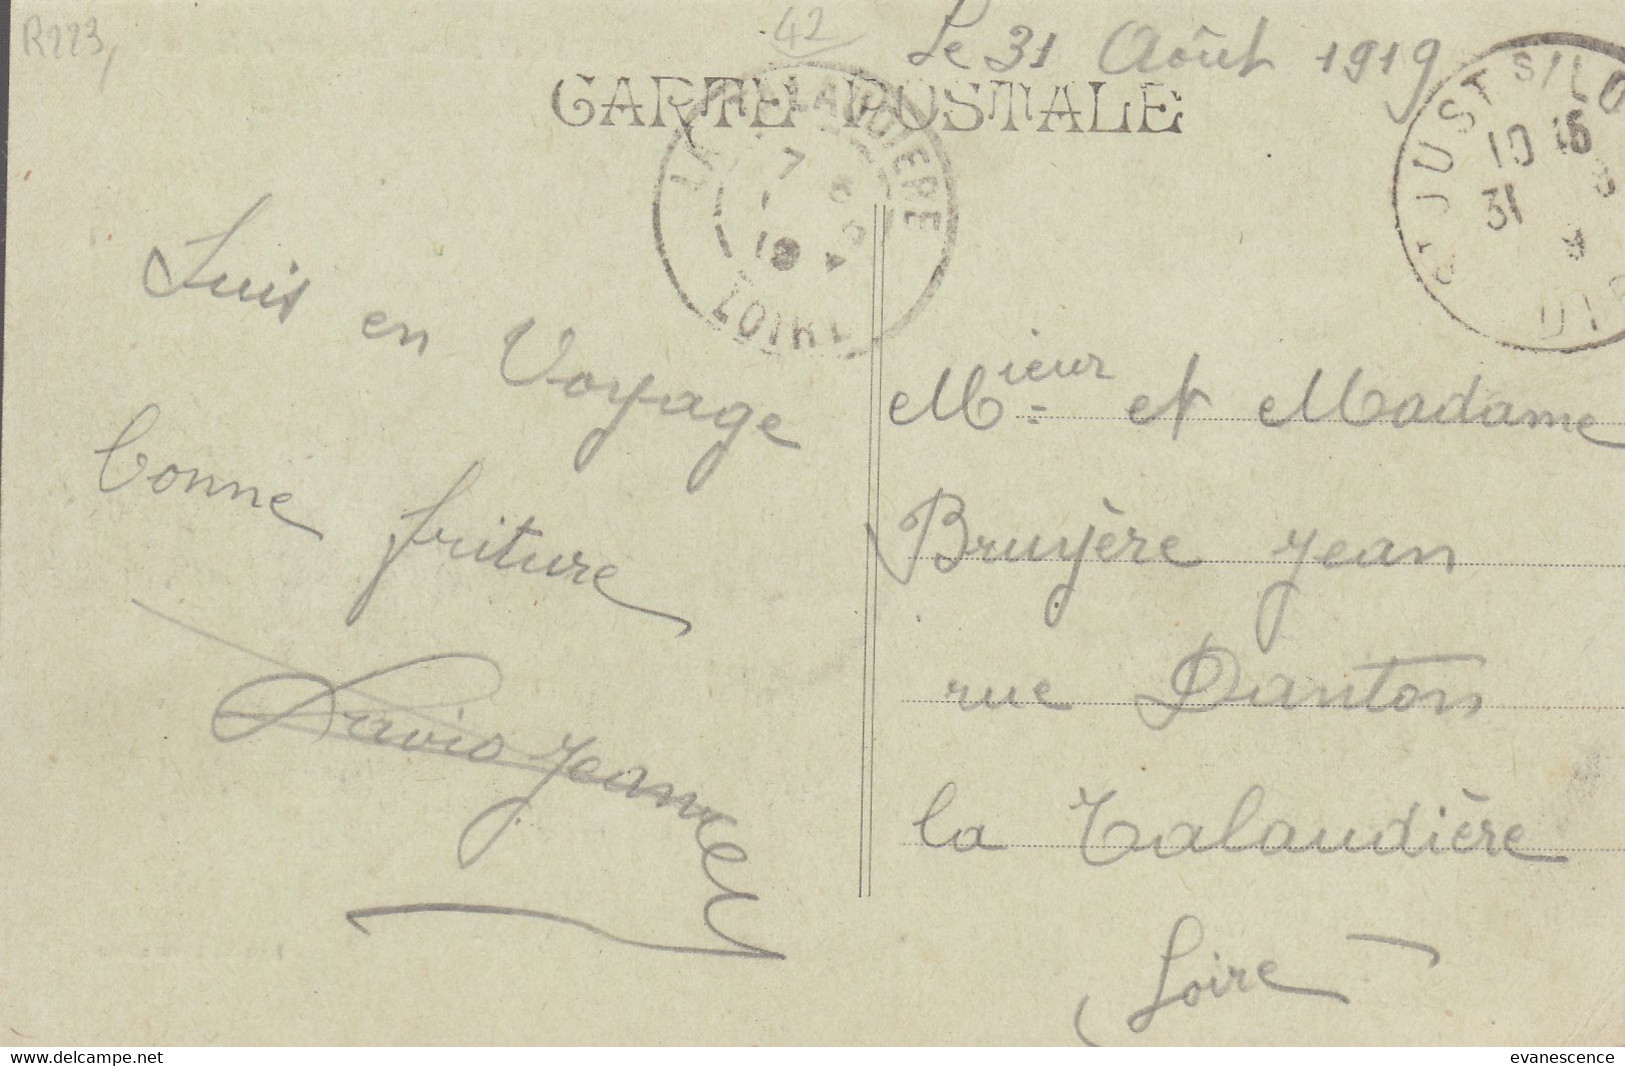 R223,
42
Le 31 Août 1919
CARTE POSTALE
LA TALAUDIERE
7
19
LOIRE
ST JUST S/LO
10 15
31 8
Suis en Voyage
bonne friture
Mieur et Madame
Bruyère Jean
rue Danton
la Talaudière
Loire
delcampe.net
evanescence